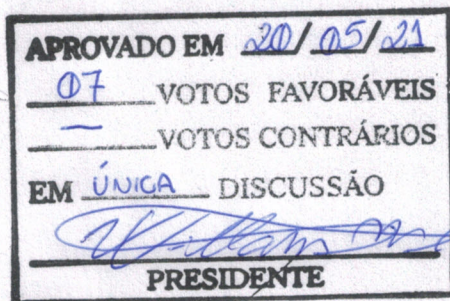 APROVADO EM 20/05/21
07 VOTOS FAVORÁVEIS
— VOTOS CONTRÁRIOS
EM ÚNICA DISCUSSÃO
PRESIDENTE